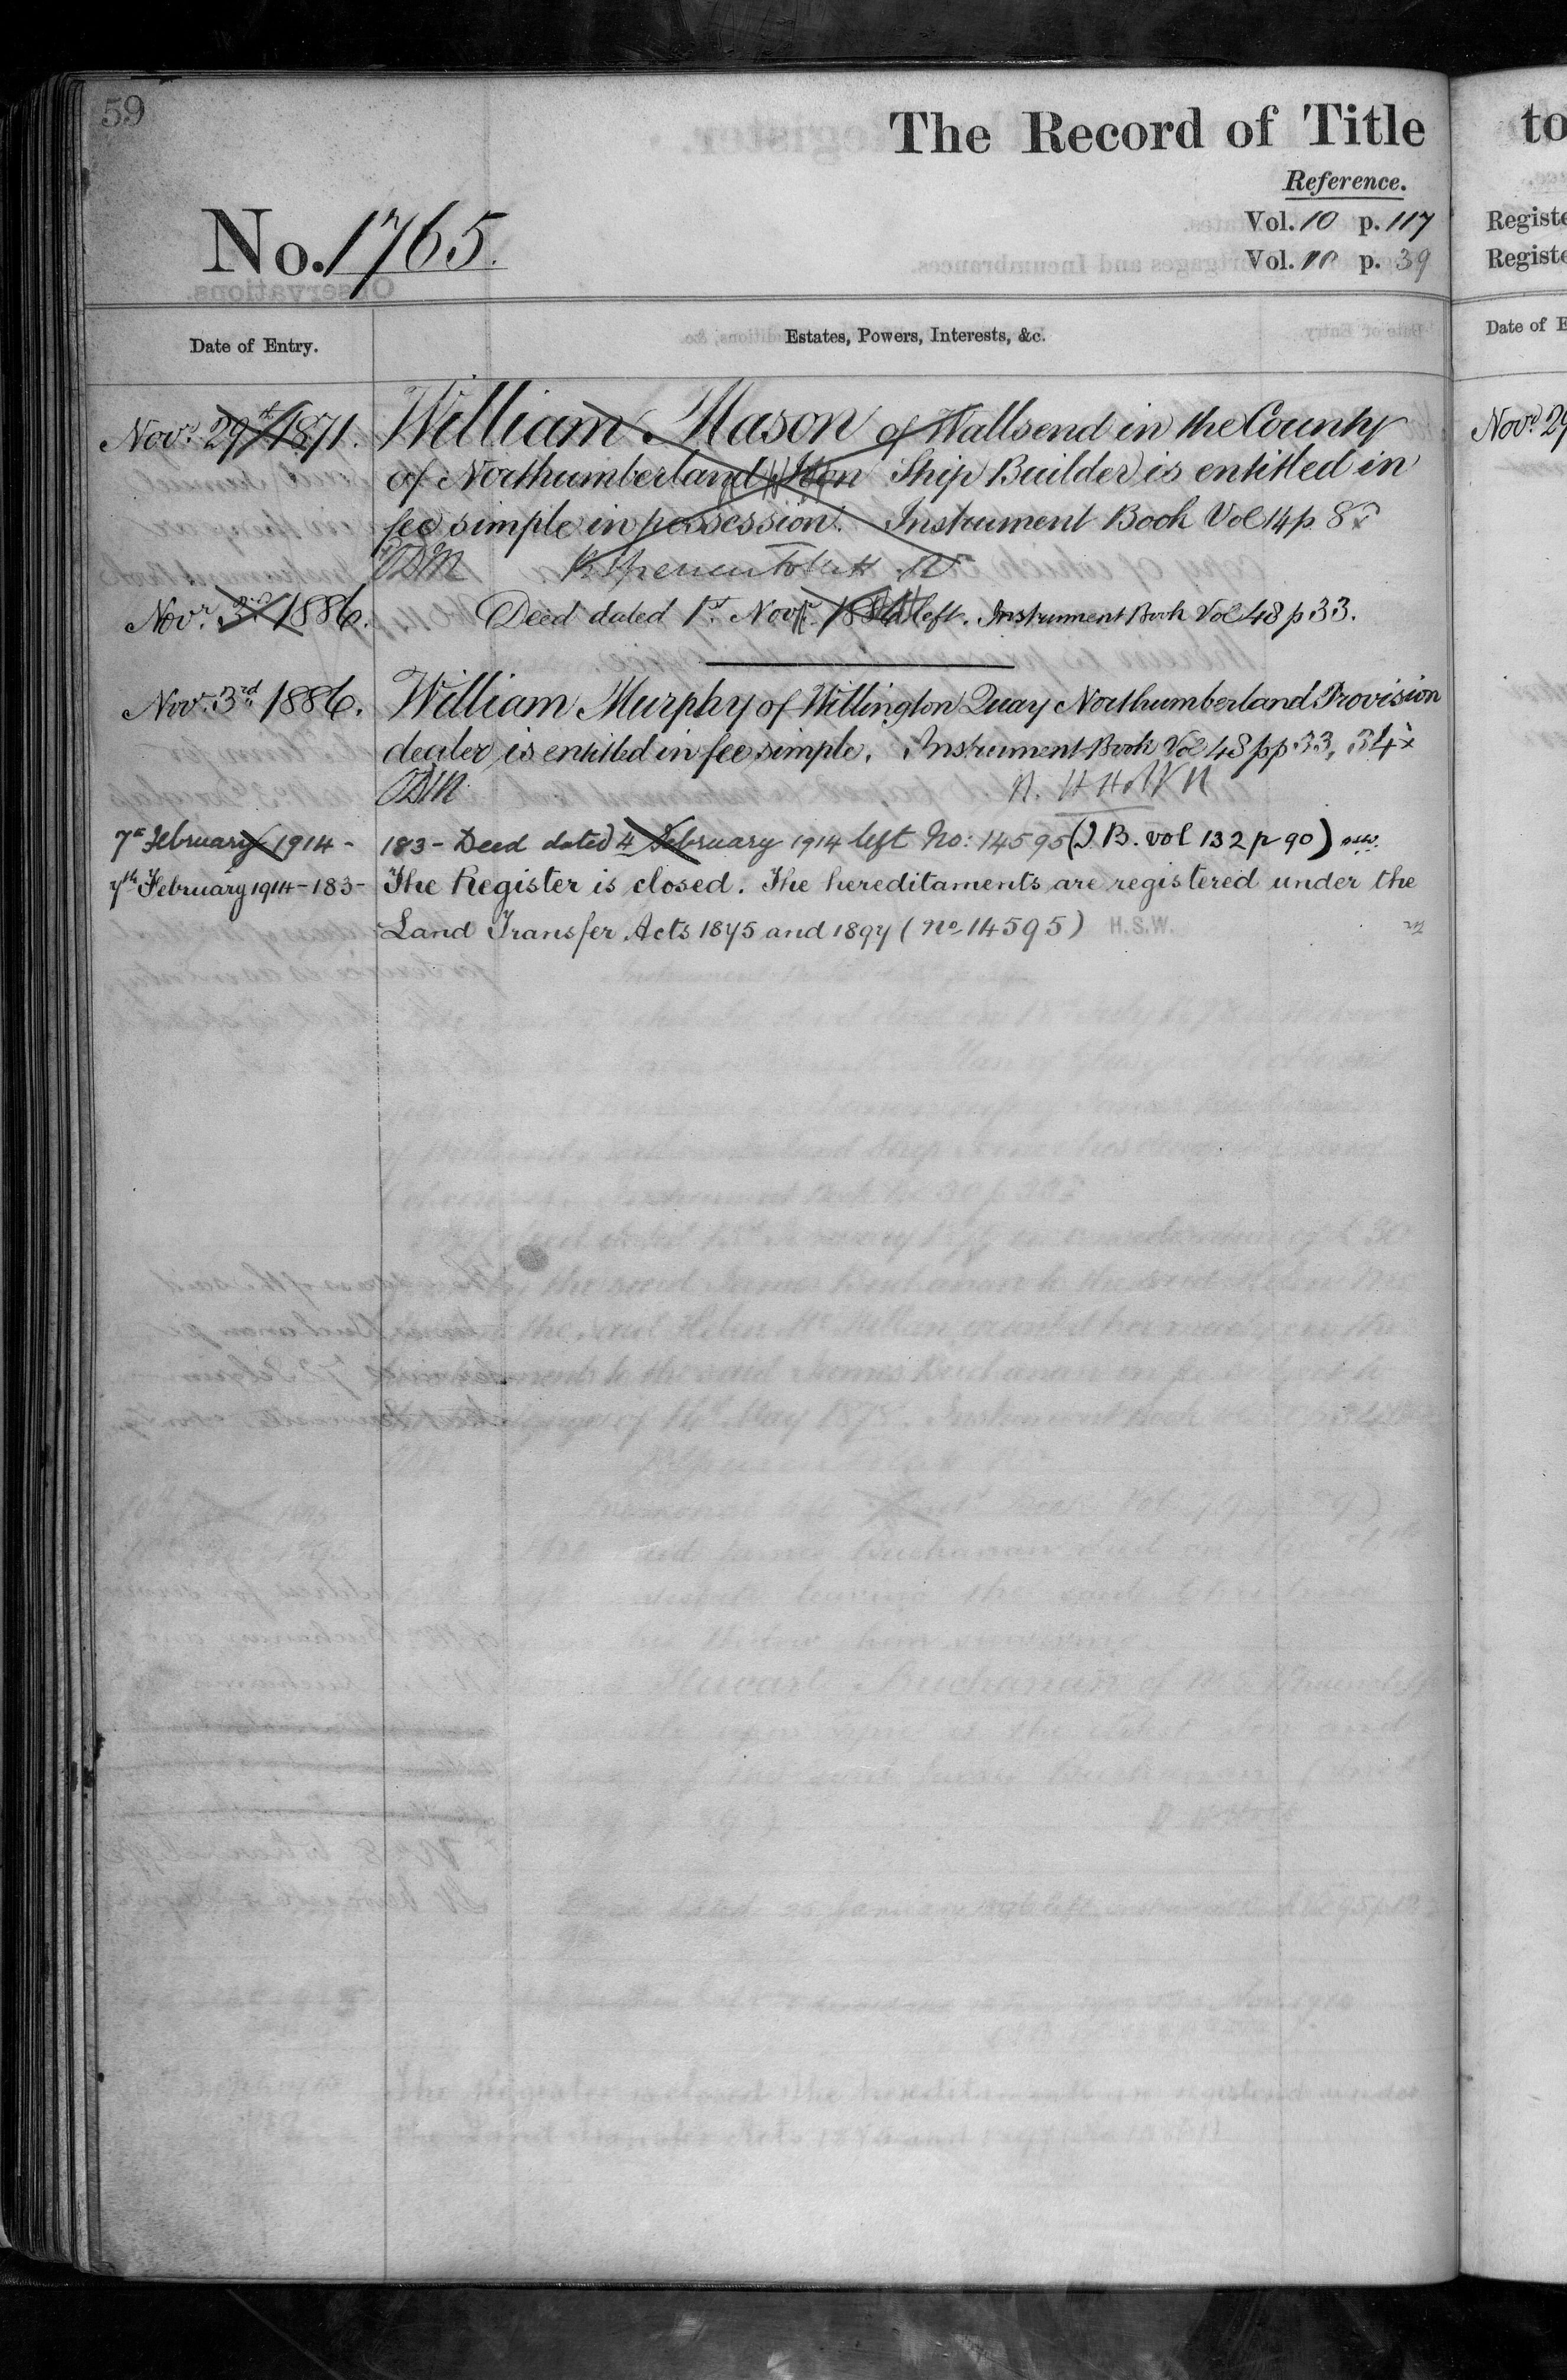 59
The Record of Title
to
Reference.
No. 1765.
Vol. 10 p. 117
Vol. 10 p. 39
Registe
Registe
Date of Entry.
Estates, Powers, Interests, &c.
Date of E
Novr. 29th 1871. William Mason of Wallsend in the County
Novr. 29
of Northumberland Iron Ship Builder is entitled in
fee simple in possession. Instrument Book Vol 14 p. 8
Novr. 3rd 1886. Deed dated 1st Novr. 1886 left. Instrument Book Vol 48 p 33.
Novr. 3rd 1886. William Murphy of Willington Quay Northumberland Provision
dealer is entitled in fee simple. Instrument Book Vol 48 pp 33, 34
7th February 1914 - 183 - Deed dated 4 February 1914 left No: 14595 (I.B. vol 132 p 90)
7th February 1914 - 183 - The Register is closed. The hereditaments are registered under the
Land Transfer Acts 1875 and 1897 (No. 14595) H.S.W.